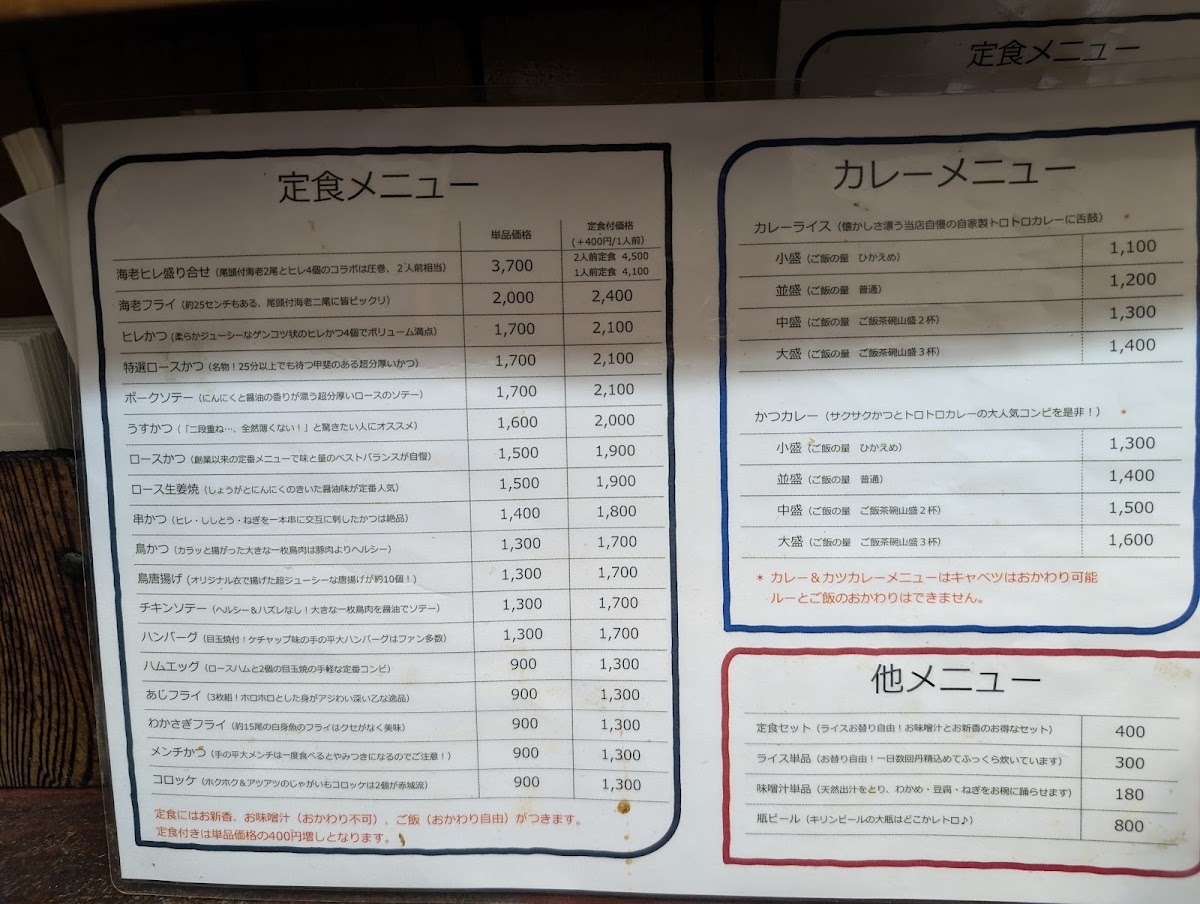 定食メニュー
定食メニュー
単品価格
定食付価格
(+400円/1人前)
海老ヒレ盛り合せ(尾頭付海老2尾とヒレ4個のコラボは圧巻、2人前相当) 3,700 2人前定食 4,500
1人前定食 4,100
海老フライ(約25センチもある、尾頭付海老二尾に皆ビックリ) 2,000 2,400
ヒレかつ(柔らかジューシーなゲンコツ状のヒレかつ4個でボリューム満点) 1,700 2,100
特選ロースかつ(名物!25分以上でも待つ甲斐のある超分厚いかつ) 1,700 2,100
ポークソテー(にんにくと醤油の香りが漂う超分厚いロースのソテー) 1,700 2,100
うすかつ(「二段重ね…、全然薄くない!」と驚きたい人にオススメ) 1,600 2,000
ロースかつ(創業以来の定番メニューで味と量のベストバランスが自慢) 1,500 1,900
ロース生姜焼(しょうがとにんにくのきいた醤油味が定番人気) 1,500 1,900
串かつ(ヒレ・ししとう・ねぎを一本串に交互に刺したかつは絶品) 1,400 1,800
鳥かつ(カラッと揚がった大きな一枚鳥肉は豚肉よりヘルシー) 1,300 1,700
鳥唐揚げ(オリジナル衣で揚げた超ジューシーな唐揚げが約10個!) 1,300 1,700
チキンソテー(ヘルシー&ハズレなし!大きな一枚鳥肉を醤油でソテー) 1,300 1,700
ハンバーグ(目玉焼付!ケチャップ味の手の平大ハンバーグはファン多数) 1,300 1,700
ハムエッグ(ロースハムと2個の目玉焼の手軽な定番コンビ) 900 1,300
あじフライ(3枚組!ホロホロとした身がアジわい深い乙な逸品) 900 1,300
わかさぎフライ(約15尾の白身魚のフライはクセがなく美味) 900 1,300
メンチかつ(手の平大メンチは一度食べるとやみつきになるのでご注意!) 900 1,300
コロッケ(ホクホク&アツアツのじゃがいもコロッケは2個が赤城流) 900 1,300
定食にはお新香、お味噌汁(おかわり不可)、ご飯(おかわり自由)がつきます。
定食付きは単品価格の400円増しとなります。
カレーメニュー
カレーライス(懐かしさ漂う当店自慢の自家製トロトロカレーに舌鼓) *
小盛(ご飯の量 ひかえめ) 1,100
並盛(ご飯の量 普通) 1,200
中盛(ご飯の量 ご飯茶碗山盛2杯) 1,300
大盛(ご飯の量 ご飯茶碗山盛3杯) 1,400
かつカレー(サクサクかつとトロトロカレーの大人気コンビを是非!) *
小盛(ご飯の量 ひかえめ) 1,300
並盛(ご飯の量 普通) 1,400
中盛(ご飯の量 ご飯茶碗山盛2杯) 1,500
大盛(ご飯の量 ご飯茶碗山盛3杯) 1,600
* カレー&カツカレーメニューはキャベツはおかわり可能
ルーとご飯のおかわりはできません。
他メニュー
定食セット(ライスお替り自由!お味噌汁とお新香のお得なセット) 400
ライス単品(お替り自由!一日数回丹精込めてふっくら炊いています) 300
味噌汁単品(天然出汁をとり、わかめ・豆腐・ねぎをお椀に踊らせます) 180
瓶ビール(キリンビールの大瓶はどこかレトロ♪) 800